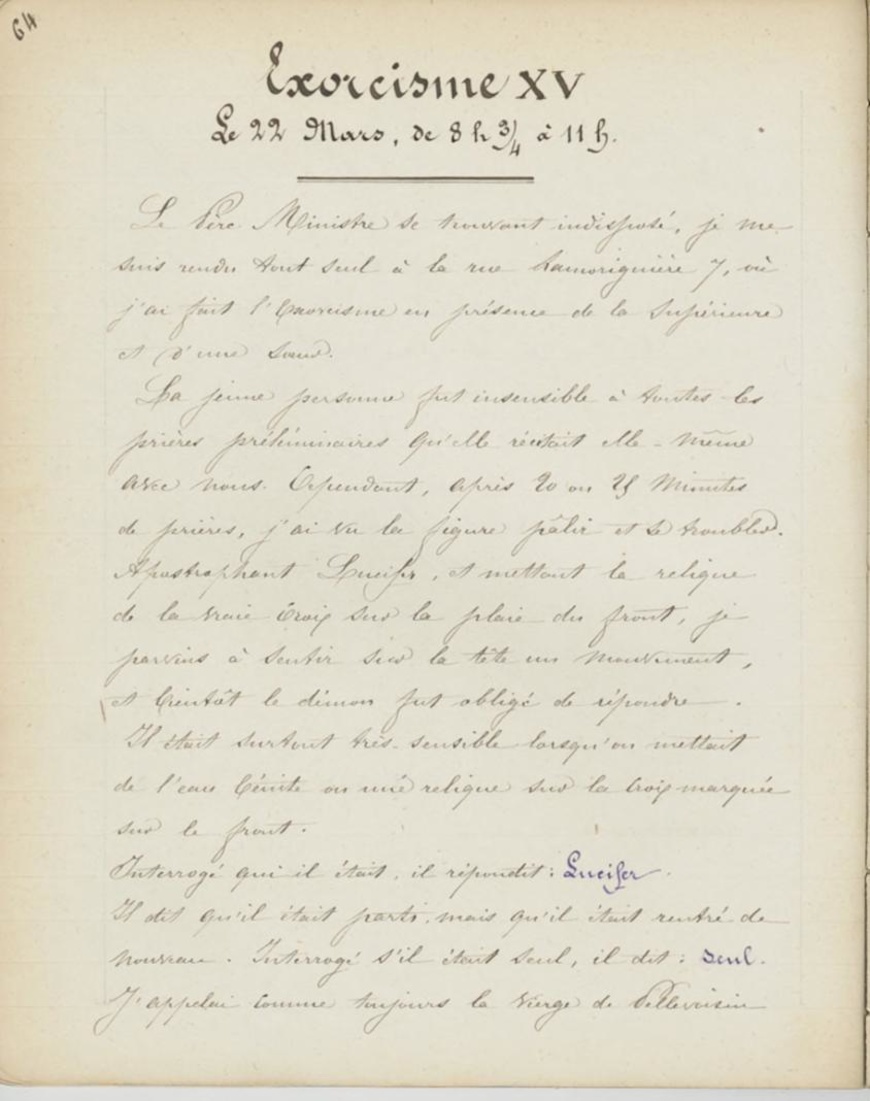 64
Exorcisme XV
Le 22 Mars, de 8 h 3/4 à 11 h.
Le Père Ministre se trouvant indisposé, je me
suis rendu tout seul à la rue Lamoriguière 7, où
j'ai fait l'Exorcisme en présence de la Supérieure
et d'une Sœur.
La jeune personne fut insensible à toutes les
prières préliminaires qu'elle récitait elle-même
avec nous. Cependant, après 20 ou 25 Minutes
de prières, j'ai vu la figure pâlir et se troubler.
Apostrophant Lucifer, et mettant la relique
de la vraie Croix sur la plaie du front, je
parvins à sentir sur la tête un mouvement,
et bientôt le démon fut obligé de répondre.
Il était surtout très-sensible lorsqu'on mettait
de l'eau bénite ou une relique sur la Croix marquée
sur le front.
Interrogé qui il était, il répondit: Lucifer.
Il dit qu'il était parti, mais qu'il était rentré de
nouveau. Interrogé s'il était seul, il dit: seul.
J'appelai comme toujours la Vierge de Pellevoisin